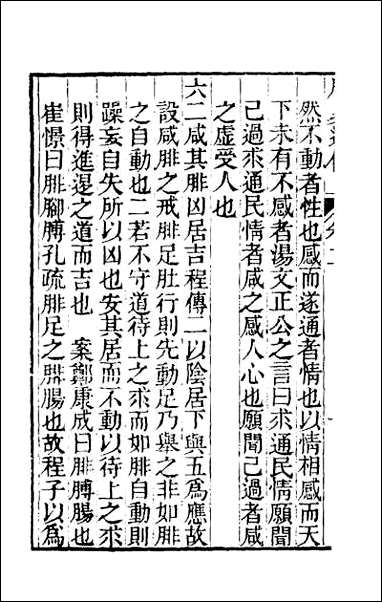 然不動者性也感而遂通者情也以情相感而天
下未有不感者湯文正公之言曰求通民情願聞
己過求通民情者咸之感人心也願聞己過者咸
之虛受人也
六二咸其腓凶居吉程傳二以陰居下與五爲應故
設咸腓之戒腓足肚行則先動足乃舉之非如腓
之自動也二若不守道待上之求而如腓自動則
躁妄自失所以凶也安其居而不動以待上之求
則得進退之道而吉也　案鄭康成曰腓膊腸也
崔憬曰腓腳膊孔疏腓足之腨腸也故程子以爲